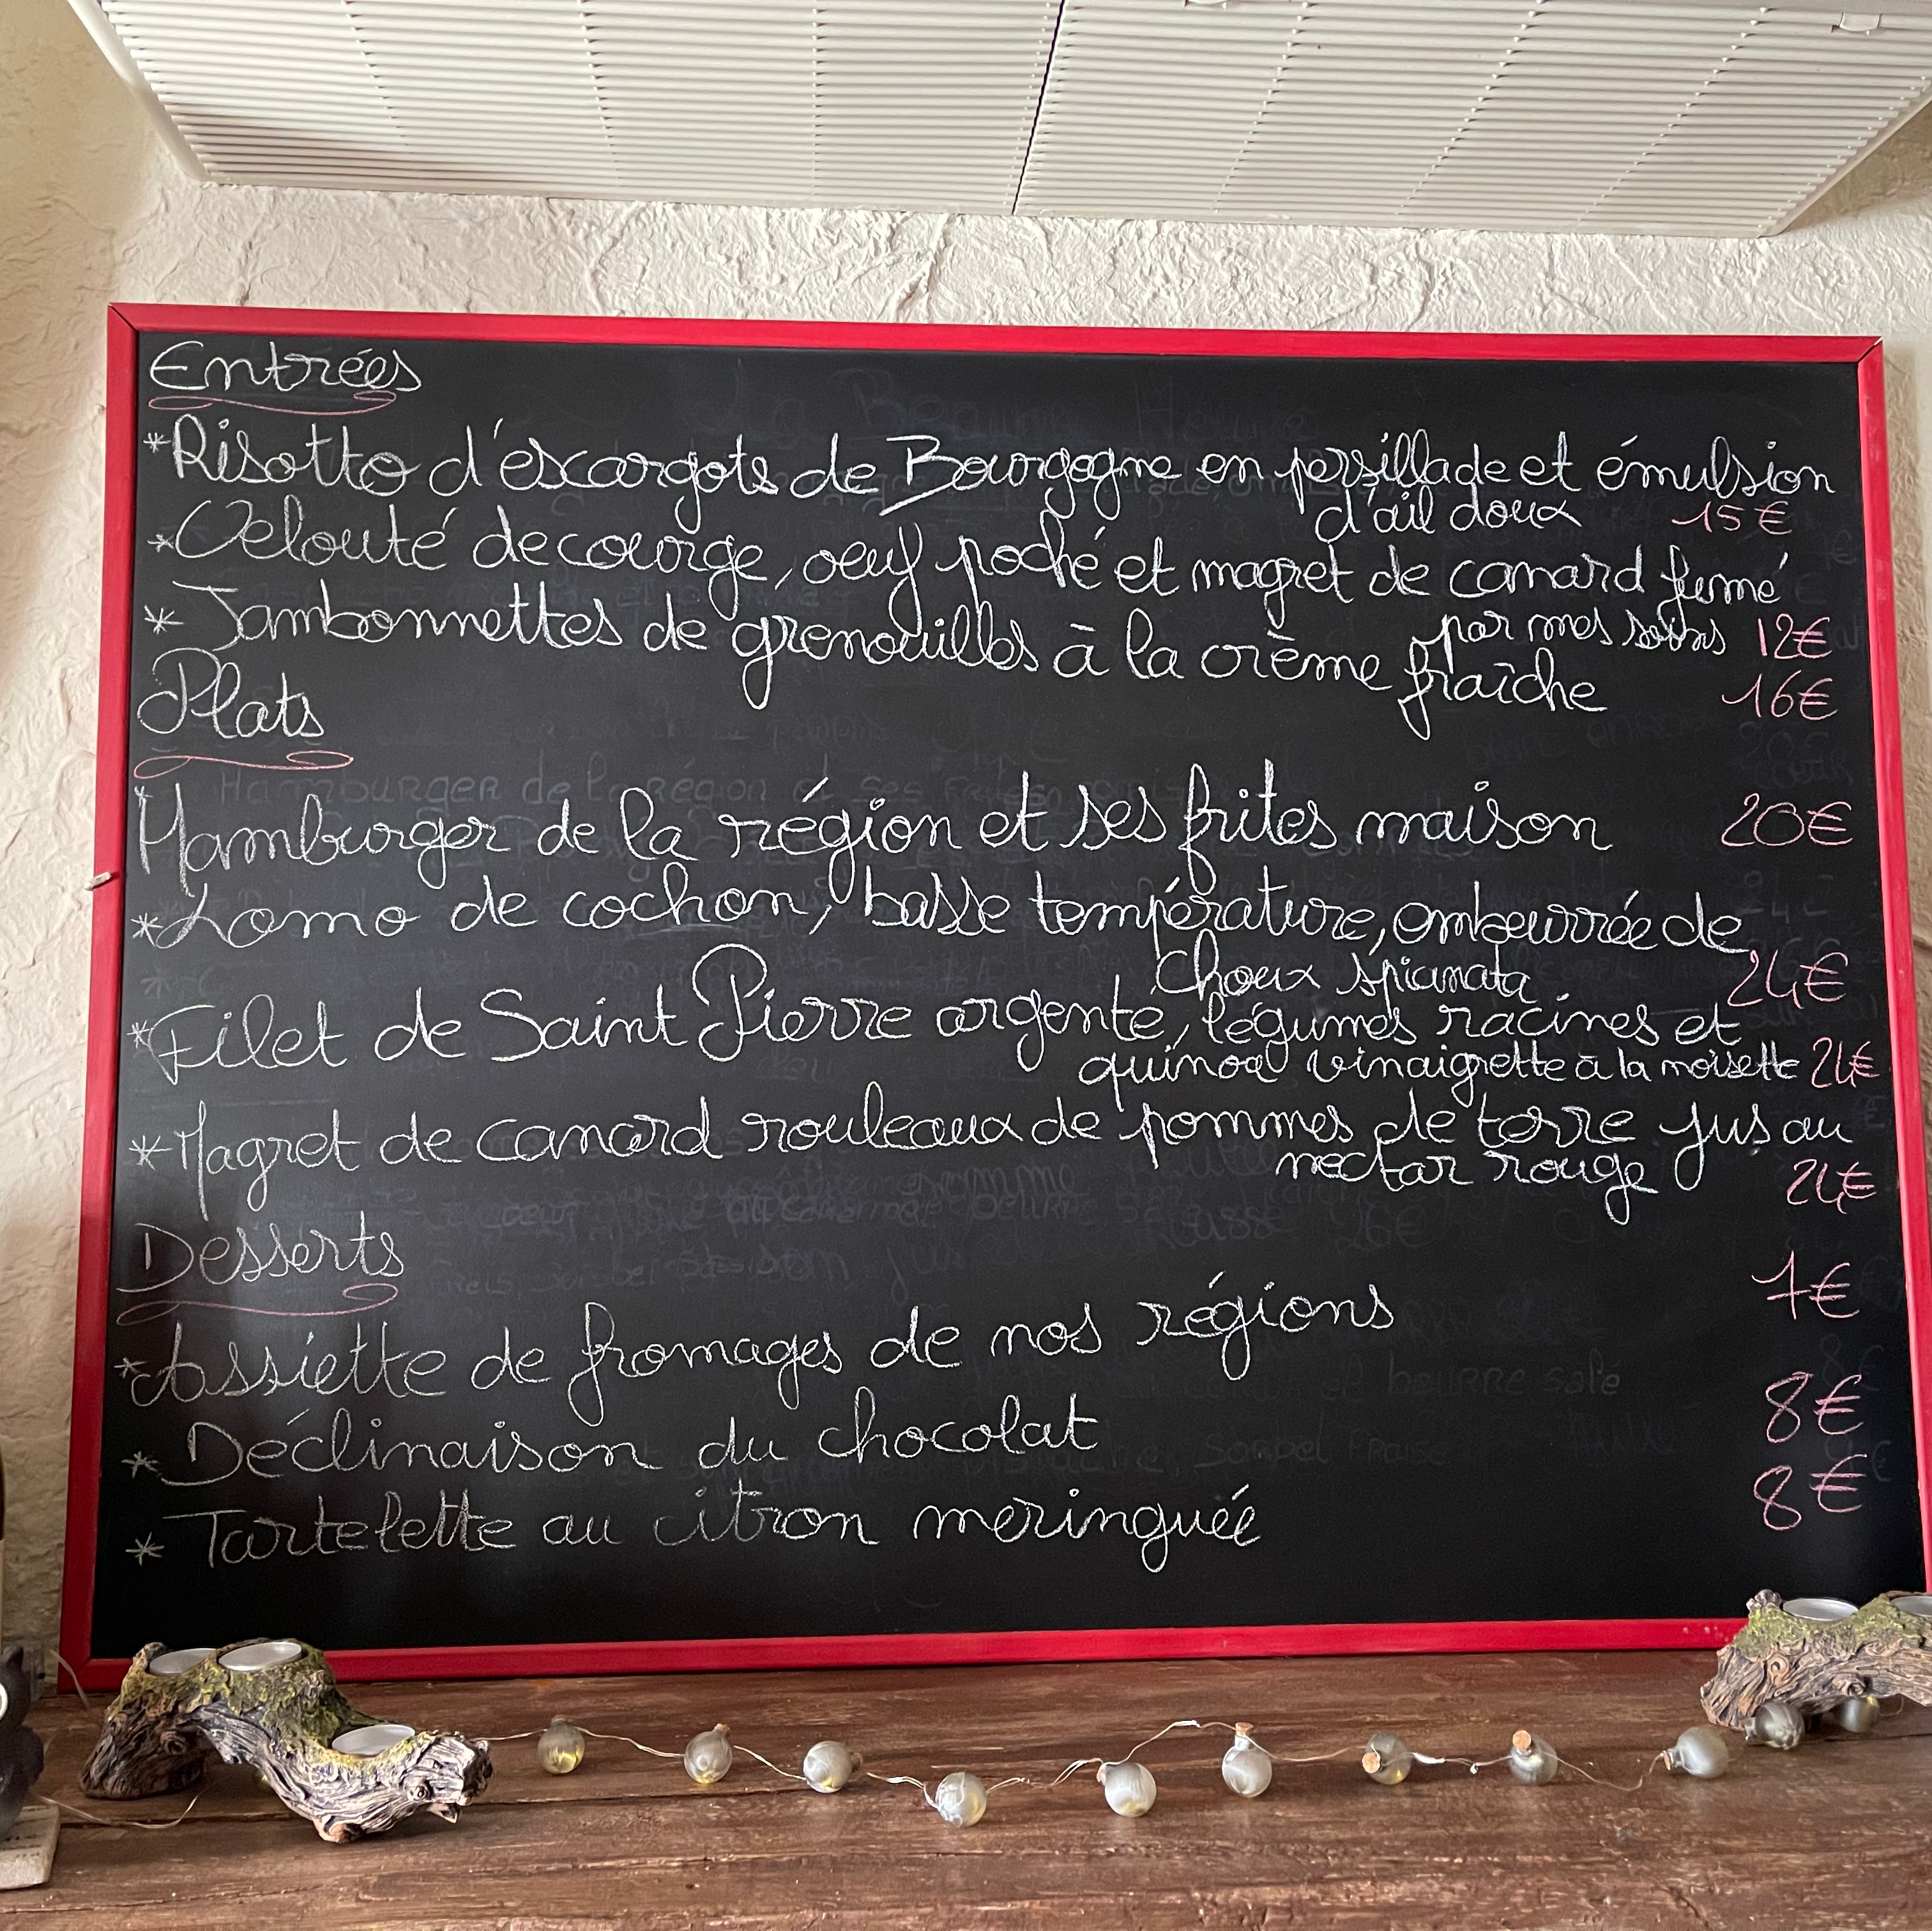 Entrées
*Risotto d'escargots de Bourgogne en persillade et émulsion
d'ail doux 15€
*Velouté de courge, oeuf poché et magret de canard fumé
par mes soins 12€
* Jambonnettes de grenouilles à la crème fraîche 16€
Plats
*Hamburger de la région et ses frites maison 20€
*Lomo de cochon, basse température, embeurrée de
choux spianata 24€
*Filet de Saint Pierre argenté, légumes racines et
quinoa vinaigrette à la noisette 24€
*Magret de canard rouleaux de pommes de terre jus au
nectar rouge 24€
Desserts
*Assiette de fromages de nos régions 7€
* Déclinaison du chocolat 8€
* Tartelette au citron meringuée 8€